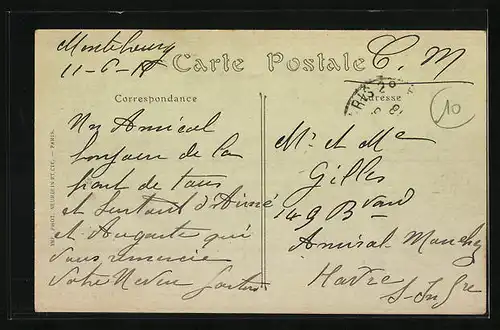 Montebourg
11-6-18
Carte Postale
F. M
Correspondance
Adresse
10
Un Amical
bonjour de la
part de tous
et surtout d'Aimé
et Auguste qui
vous remercie
Votre Neveu Gaston
Mr et Me
Gilles
149 Bvard
Amiral Mouchez
Havre
S-Infre
IMP. PHOT. NEURDEIN ET CIE. - PARIS.